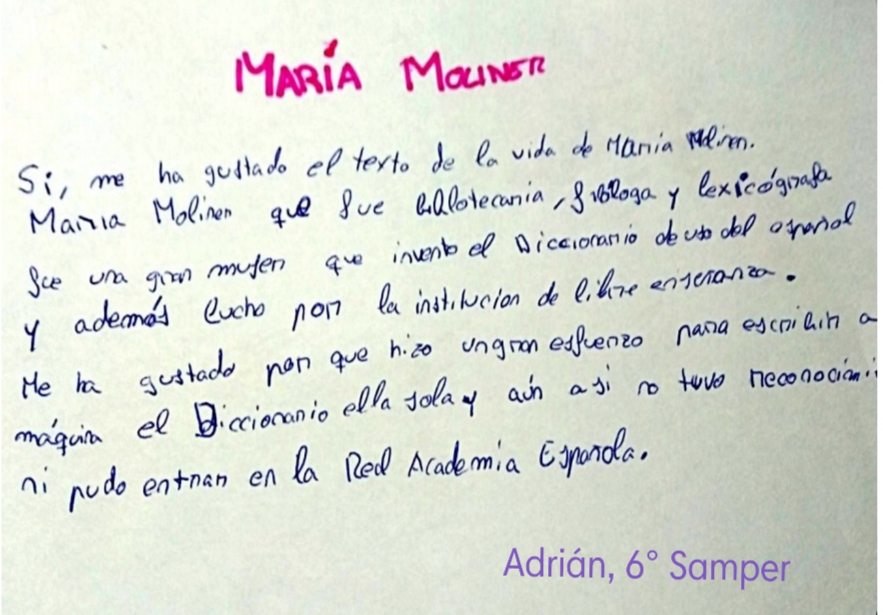 MARÍA MOLINER
Si, me ha gustado el texto de la vida de Maria Moliner.
Maria Moliner que fue bibliotecaria, filóloga y lexicógrafa
fue una gran mujer que invento el Diccionario de uso del español
y además lucho por la institucion de libre enseranza.
Me ha gustado por que hizo un gran esfuerzo para escribir a
máquina el Diccionario ella sola y aún a si no tuvo reconocimi
ni pudo entrar en la Real Academia Española.
Adrián, 6° Samper